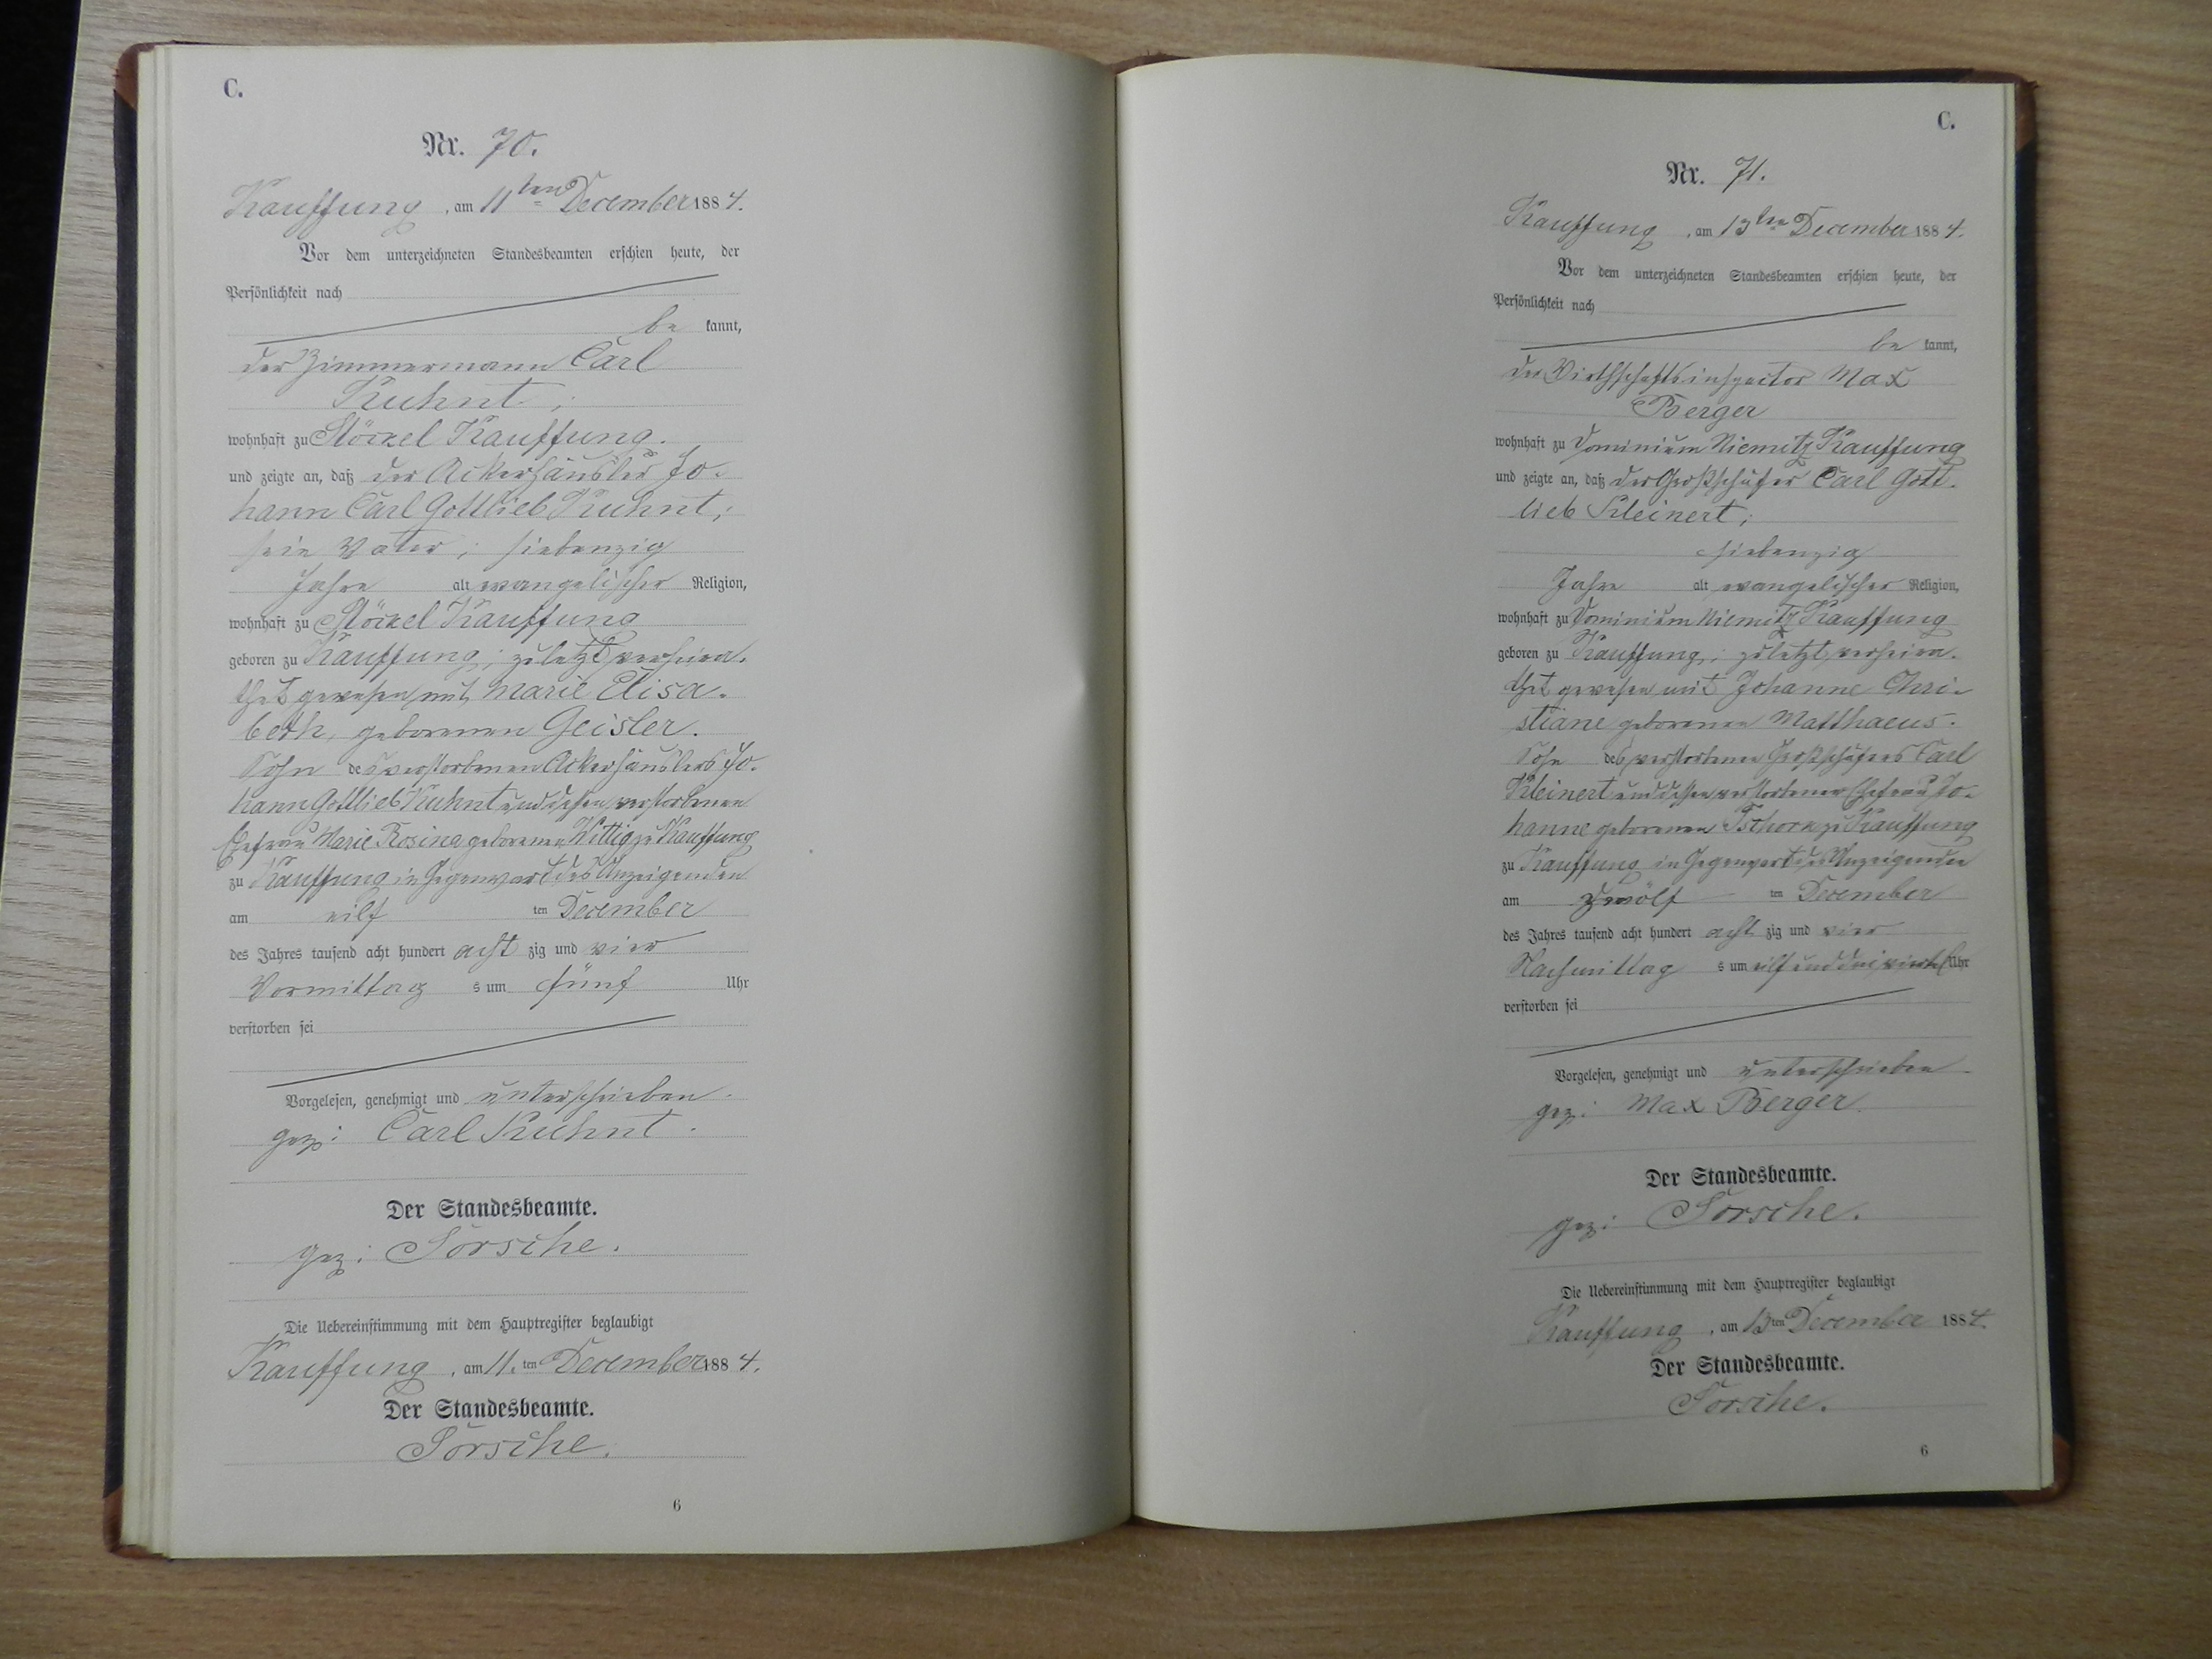 C.
Nr. 70.
Kauffung, am 11ten December 1884.
Vor dem unterzeichneten Standesbeamten erschien heute, der
Persönlichkeit nach
be kannt,
der Zimmermann Carl
Kuhnt;
wohnhaft zu Stöckel Kauffung.
und zeigte an, daß der Ackerhäusler Jo-
hann Carl Gottlieb Kuhnt;
sein Vater; siebenzig
Jahre alt evangelischer Religion,
wohnhaft zu Stöckel Kauffung
geboren zu Kauffung; zuletzt verheira-
thet gewesen mit Marie Elisa-
beth, geborenen Geisler.
Sohn des verstorbenen Ackerhäuslers Jo-
hann Gottlieb Kuhnt und dessen verstorbenen
Ehefrau Marie Rosina geborenen Wittig zu Kauffung
zu Kauffung in Gegenwart des Anzeigenden
am eilf ten December
des Jahres tausend acht hundert acht zig und vier
Vormittag s um fünf Uhr
verstorben sei
Vorgelesen, genehmigt und unterschrieben.
gez: Carl Kuhnt.
Der Standesbeamte.
gez: Sorsche.
Die Uebereinstimmung mit dem Hauptregister beglaubigt
Kauffung, am 11. ten December 1884.
Der Standesbeamte.
Sorsche.
6
C.
Nr. 71.
Kauffung, am 13ten December 1884.
Vor dem unterzeichneten Standesbeamten erschien heute, der
Persönlichkeit nach
be kannt,
der Wirthschaftsinspector Max
Berger
wohnhaft zu Dominium Niemitz Kauffung
und zeigte an, daß der Großschäfer Carl Gott-
lieb Kleinert;
siebenzig
Jahre alt evangelischer Religion,
wohnhaft zu Dominium Niemitz Kauffung
geboren zu Kauffung; zuletzt verheira-
thet gewesen mit Johanne Chri-
stiane geborenen Matthaeus.
Sohn des verstorbenen Großschäfers Carl
Kleinert und dessen verstorbenen Ehefrau Jo-
hanne geborenen Tschorn zu Kauffung
zu Kauffung in Gegenwart des Anzeigenden
am zwölf ten December
des Jahres tausend acht hundert acht zig und vier
Nachmittag s um eilf und drei viertel Uhr
verstorben sei
Vorgelesen, genehmigt und unterschrieben
gez: Max Berger.
Der Standesbeamte.
gez: Sorsche.
Die Uebereinstimmung mit dem Hauptregister beglaubigt
Kauffung, am 13 ten December 1884.
Der Standesbeamte.
Sorsche.
6